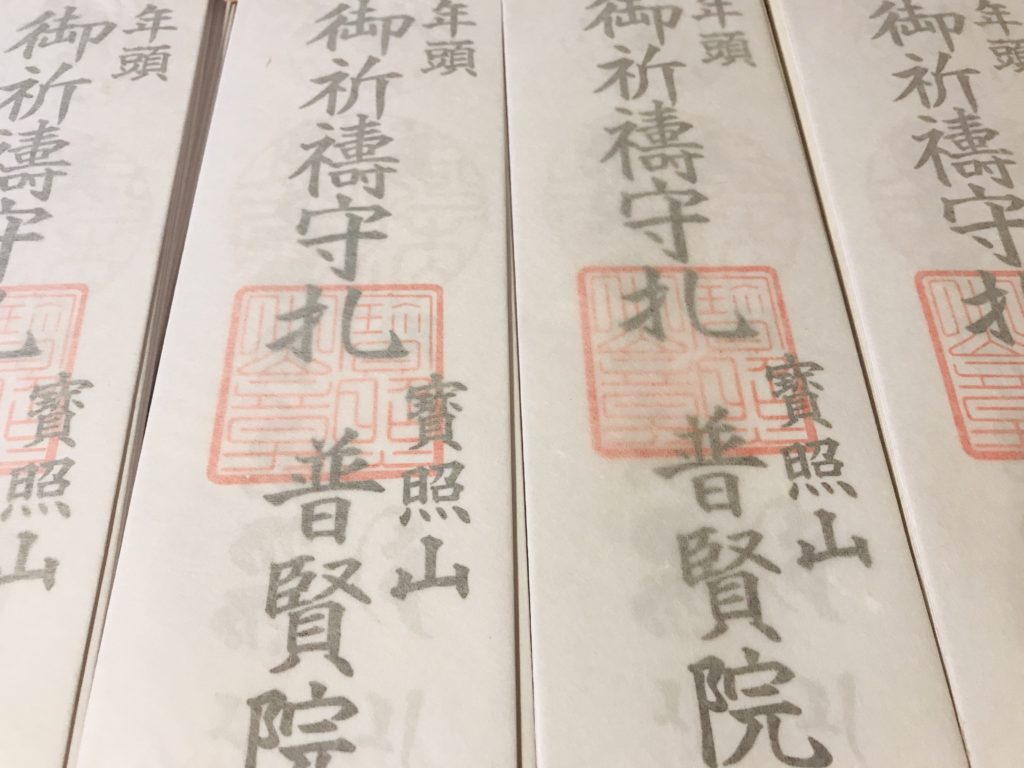 年頭
御祈禱守
年頭
御祈禱守札
寶照山
普賢院
年頭
御祈禱守札
寶照山
普賢院
年頭
御祈禱守札
寶照山